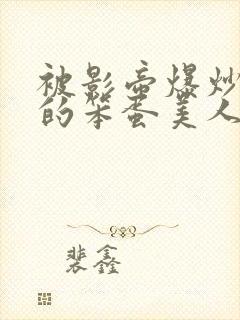 被影帝爆炒
的笨蛋美人
裴鑫